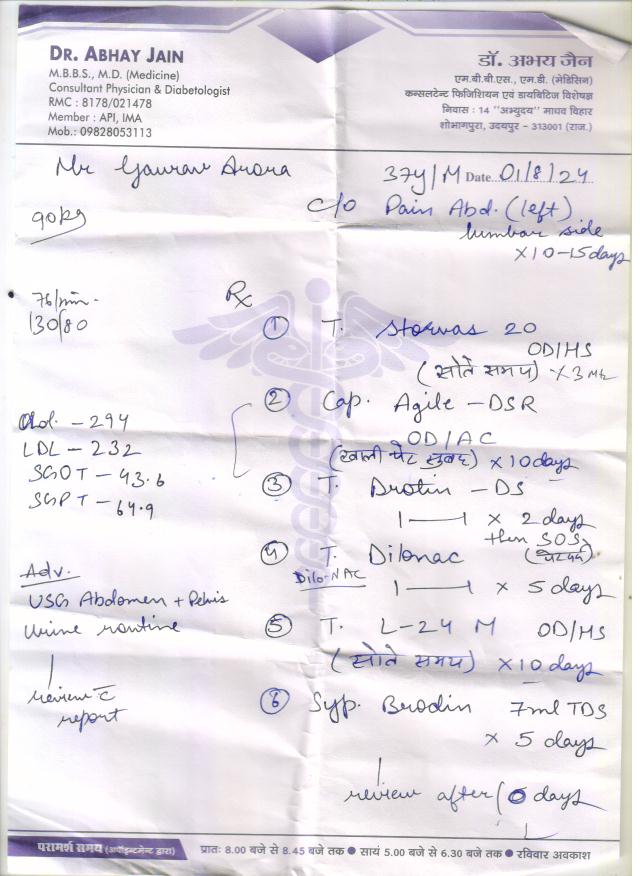 DR. ABHAY JAIN
M.B.B.S., M.D. (Medicine)
Consultant Physician & Diabetologist
RMC : 8178/021478
Member : API, IMA
Mob.: 09828053113
डॉ. अभय जैन
एम.बी.बी.एस., एम.डी. (मेडिसिन)
कन्सलटेन्ट फिजिशियन एवं डायबिटिज विशेषज्ञ
निवास : 14 "अभ्युदय" माधव विहार
शोभागपुरा, उदयपुर - 313001 (राज.)
Mr Gaurav Arora 37y/M Date 01/8/24
90kg
c/o Pain Abd. (left)
lumbar side
x 10-15 days
76/min.
130/80
Rx
① T. Storvas 20
OD/HS
(सोते समय) x 3
② Cap. Agile - DSR
OD/AC
(खाली पेट सुबह) x 10 days
LDL - 232
SGOT - 43.6
SGPT - 64.9
③ T. Drotin - DS
1——1 x 2 days
then SOS
④ T. Dilonac
Dilo-NAC
1——1 x 5 days
Adv.
USG Abdomen + Pelvis
Urine routine
review c̄
report
⑤ T. L-24 M OD/HS
(सोते समय) x 10 days
⑥ Syp. Brodin 7ml TDS
x 5 days
review after days
परामर्श समय (अपॉइन्टमेन्ट द्वारा) प्रातः 8.00 बजे से 8.45 बजे तक ● सायं 5.00 बजे से 6.30 बजे तक ● रविवार अवकाश